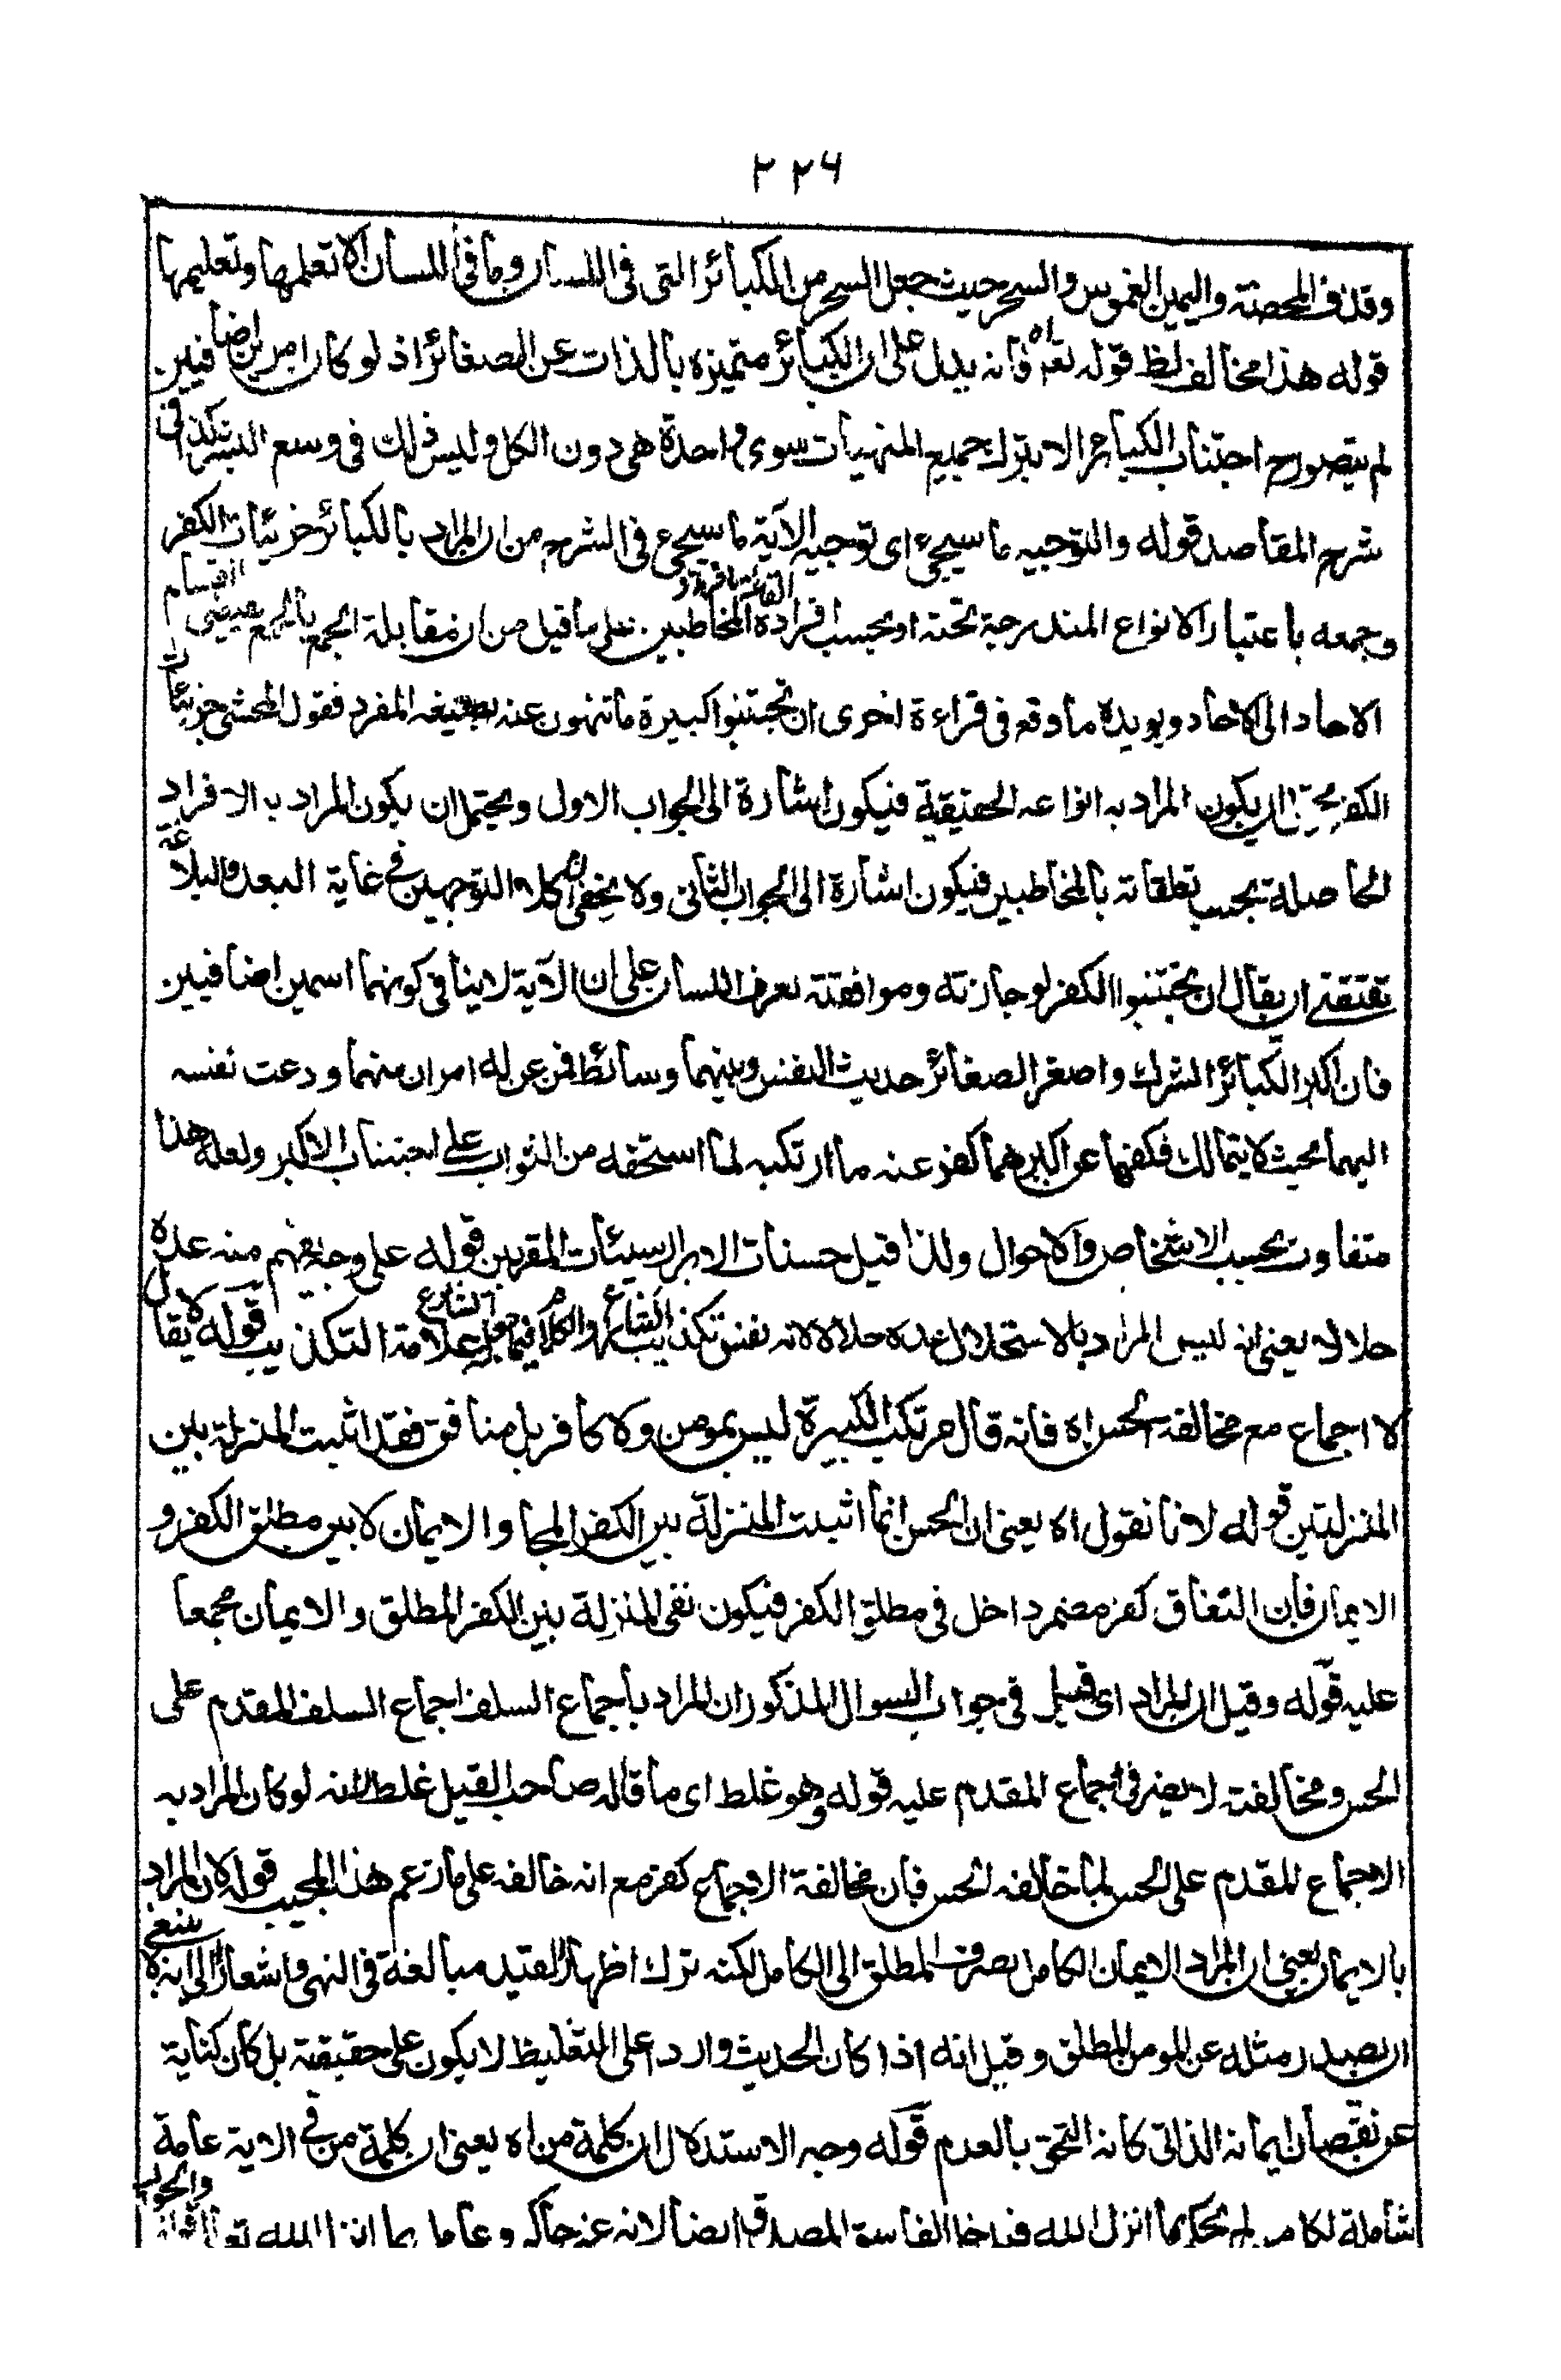 ٢٢٦
وقذف المحصنة واليمين الغموس والسحر حيث جعل السحر من الكبائر التى فى اللسان وما فى اللسان الا تعلمها وتعليمها
قوله هذا مخالف لظ قوله تعم اه فانه يدل على ان الكبائر متميزه بالذات عن الصغائر اذ لو كان امرين اضافيين
لم يتصور ح اجتناب الكبائر الا بترك جميع المنهيات سوى واحدة هى دون الكل وليس ذلك فى وسع البشر كذا فى
شرح المقاصد قوله والتوجيه ما سيجىء اى توجيه الآية ما سيجىء فى الشرح من ان المراد بالكبائر جزئيات الكفر
وجمعه باعتبار الانواع المندرجة تحته او بحسب افراده القائمة بافراد المخاطبين على ما قيل من ان مقابلة الجمع بالجمع يقتضى انقسام
الاحاد الى الاحاد ويويده ما وقع فى قراءة اخرى ان تجتنبوا كبيرة ما تنهون عنه بصيغه المفرد فقول المحشى جزئيات
الكفر يحتمل ان يكون المراد به انواعه الحقيقية فيكون اشارة الى الجواب الاول ويحتمل ان يكون المراد به الافراد
الحاصلة بحسب تعلقاته بالمخاطبين فيكون اشارة الى الجواب الثانى ولا يخفى ان كلا التوجهين فى غاية البعد والبلاغة
تقتضى ان يقال ان تجتنبوا الكفر لوجازته وموافقته لعرف اللسان على ان الآية لا ينافى كونهما اسمين اضافيين
فان اكبر الكبائر الشرك واصغر الصغائر حديث النفس وبينهما وسائط فمن عن له امران منهما ودعت نفسه
اليهما بحيث لا يتمالك فكفها عن اكبرهما كفر عنه ما ارتكبه لما استحقه من الثواب على اجتناب الاكبر ولعل هذا
متفاوت بحسب الاشخاص والاحوال ولذا قيل حسنات الابرار سيئات المقربين قوله على وجه يفهم منه عده
حلالا يعنى انه ليس المراد بالاستحلال عده حلالا لانه نفس تكذيب الشارع والكلام فيما جعله الشارع علامة التكذيب قوله لا يقال
لا اجماع مع مخالفة الحسن اه فانه قال مرتكب الكبيرة ليس بمومن ولا كافر بل منافق فقد اثبت المنزلة بين
المنزلتين قوله لانا نقول اه يعنى ان الحسن انما اثبت المنزلة بين الكفر المجا و الايمان لا بين مطلق الكفر و
الايمان فان النفاق كفر مضمر داخل فى مطلق الكفر فيكون نفى المنزلة بين الكفر المطلق والايمان مجمعا
عليه قوله وقيل ان المراد اى قيل فى جواب السوال المذكور ان المراد باجماع السلف اجماع السلف المقدم على
الحسن ومخالفته لا يضر فى اجماع المقدم عليه قوله وهو غلط اى ما قاله صاحب القيل غلط لانه لو كان المراد به
الاجماع المقدم على الحسن لما خالفه الحسن فان مخالفة الاجماع كفر مع انه خالفه على ما زعم هذا المجيب قوله لان المراد
بالايمان يعنى ان المراد الايمان الكامل بصرف المطلق الى الكامل لكنه ترك اظهار القيد مبالغة فى النهى واشعارا الى انه لا ينبغى
ان يصدر مثله عن المومن المطلق وقيل انه اذا كان الحديث واردا على التغليظ لا يكون على حقيقته بل كان كناية
عن نقصان ايمانه الذاتى كانه التحق بالعدم قوله وجه الاستدلال ان كلمة من اه يعنى ان كلمة من فى الاية عامة
شاملة لكل من لم يحكم بما انزل الله فيدخل الفاسق المصدق ايضا لانه غير حاكم وعامل بما انزل الله تعم والجواب